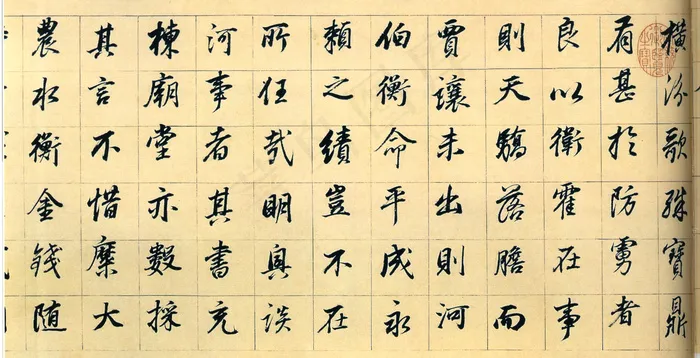 橫汾歌殊寶鼎
有甚於防虜者
良以衛霍在事
則天驕落膽而
賈讓未出則河
伯衡命平成永
賴之績豈不在
所狂哉明興談
河事者其書充
棟廟堂亦數採
其言不惜糜大
農水衡金錢随